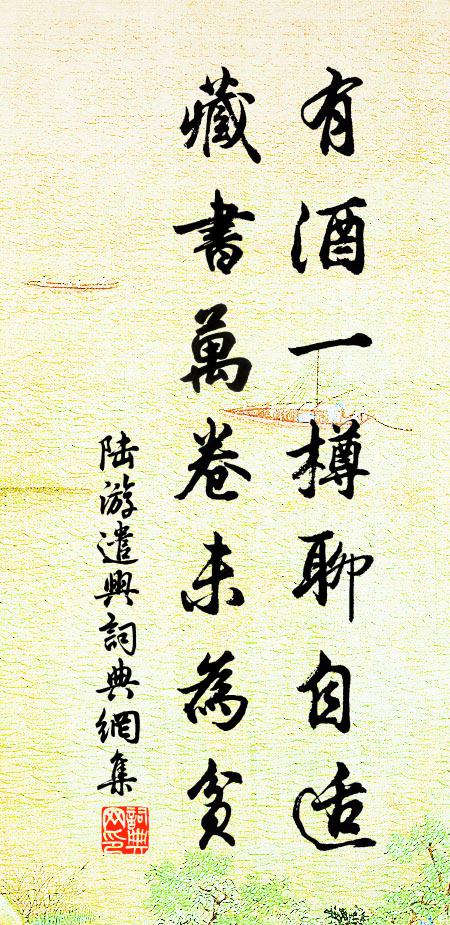 有酒一樽聊自适
藏書萬卷未為貧
陆游遣興詞典網集
詞典網印